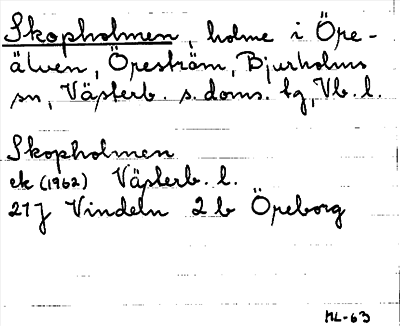 Skopholmen, holme i Öre-
älven, Öreström, Bjurholms
sn, Västerb. s. doms. tg, Vb. l.
Skopholmen
ek (1962) Västerb. l.
21J Vindeln 2b Öreborg
ML-63